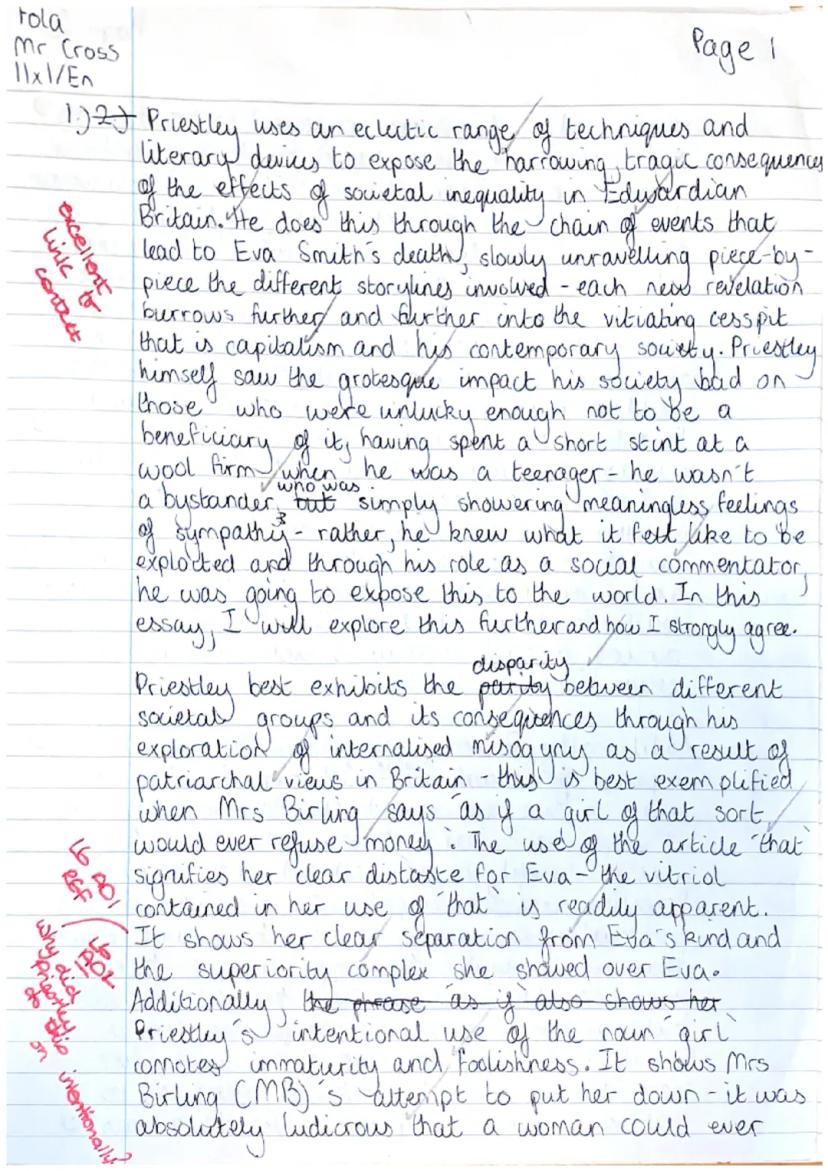 rola
Mr Cross
11x1/En
Page 1
1.) 2.) Priestley uses an eclectic range of techniques and
literary devices to expose the harrowing, tragic consequences
of the effects of societal inequality in Edwardian
Britain. He does this through the chain of events that
lead to Eva Smith's death, slowly unravelling piece-by-
piece the different storylines involved - each new revelation
burrows further and further into the vitiating cesspit
that is capitalism and his contemporary society. Priestley
himself saw the grotesque impact his society had on
those who were unlucky enough not to be a
beneficiary of it, having spent a short stint at a
wool firm when he was a teenager - he wasn't
who was
a bystander, but simply showering meaningless feelings
of sympathy - rather, he knew what it felt like to be
exploited and through his role as a social commentator,
he was going to expose this to the world. In this
essay, I will explore this further and how I strongly agree.
excellent
link to
context
disparity
Priestley best exhibits the parity between different
societal groups and its consequences through his
exploration of internalised misogyny as a result of
patriarchal views in Britain - this is best exemplified
when Mrs Birling says "as if a girl of that sort
would ever refuse money". The use of the article "that"
signifies her clear distaste for Eva - the vitriol
contained in her use of "that" is readily apparent.
It shows her clear separation from Eva's kind and
the superiority complex she showed over Eva.
Additionally, the phrase "as if" also shows her
Priestley's intentional use of the noun "girl"
connotes immaturity and foolishness. It shows Mrs
Birling (MB)'s attempt to put her down - it was
absolutely ludicrous that a woman could ever
why did
Priestley
do this
on intentionally?